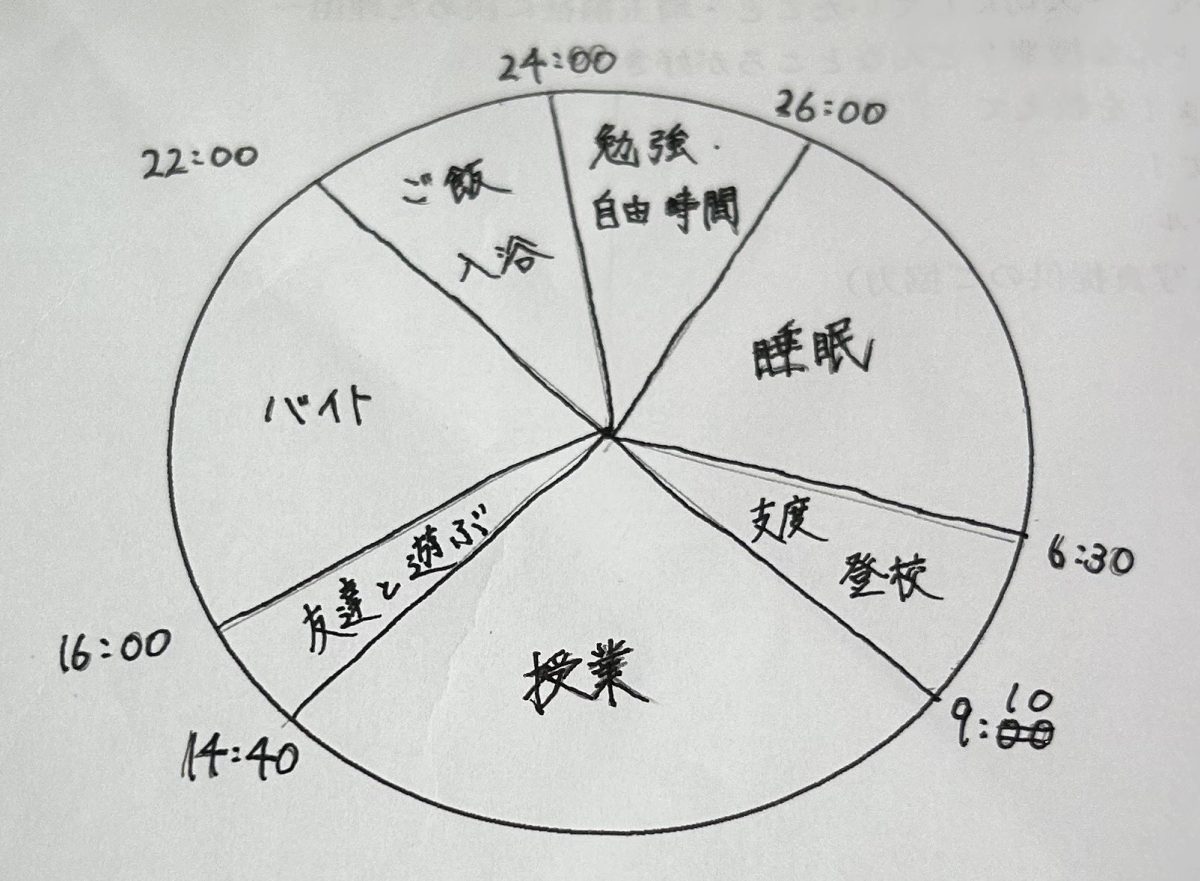 24:00
26:00
22:00
勉強・
自由時間
ご飯
入浴
睡眠
バイト
6:30
支度
登校
友達と遊ぶ
16:00
授業
9:10
14:40